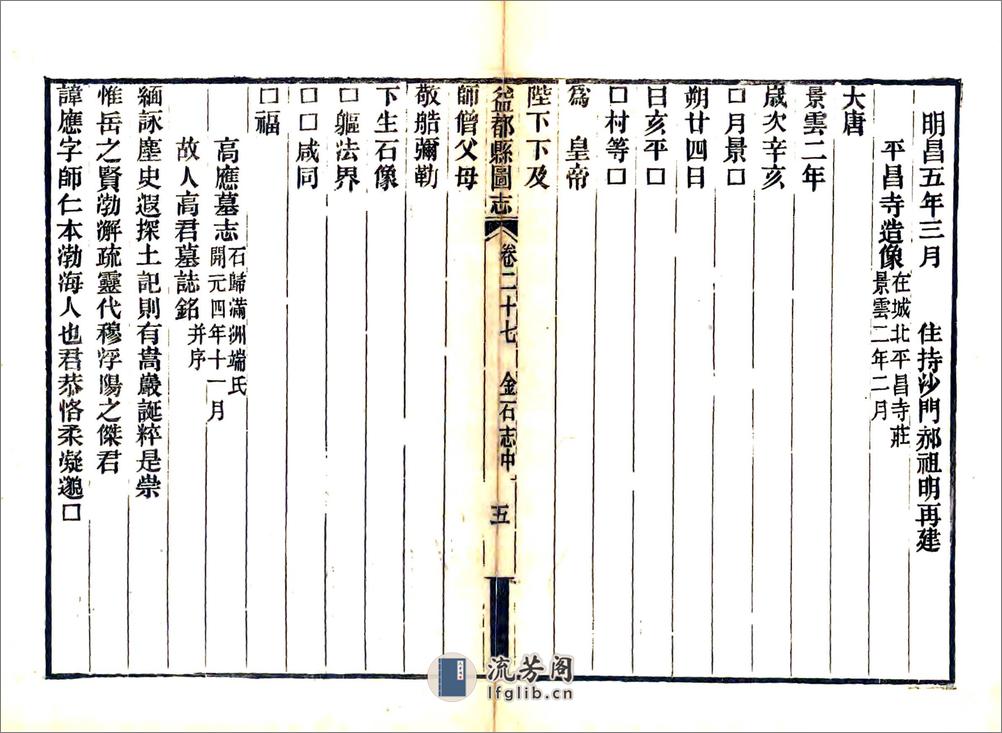 明昌五年三月　　住持沙門郝祖明再建
平昌寺造像 在城北平昌寺莊 景雲二年二月
大唐
景雲二年
歲次辛亥
□月景□
朔廿四日
日亥平□
□村等□
爲　皇帝
陛下下及
師僧父母
敬皓彌勒
下生石像
□軀法界
□□咸同
□福
高應墓志 石歸滿洲端氏 開元四年十一月
故人高君墓誌銘 并序
緬詠塵史遐探土記則有嵩巖誕粹是崇
惟岳之賢渤澥疏靈代穆浮陽之傑君
諱應字師仁本渤海人也君恭恪柔凝邈□
益都縣圖志　卷二十七　金石志中　五
流芳阁
lfglib.cn